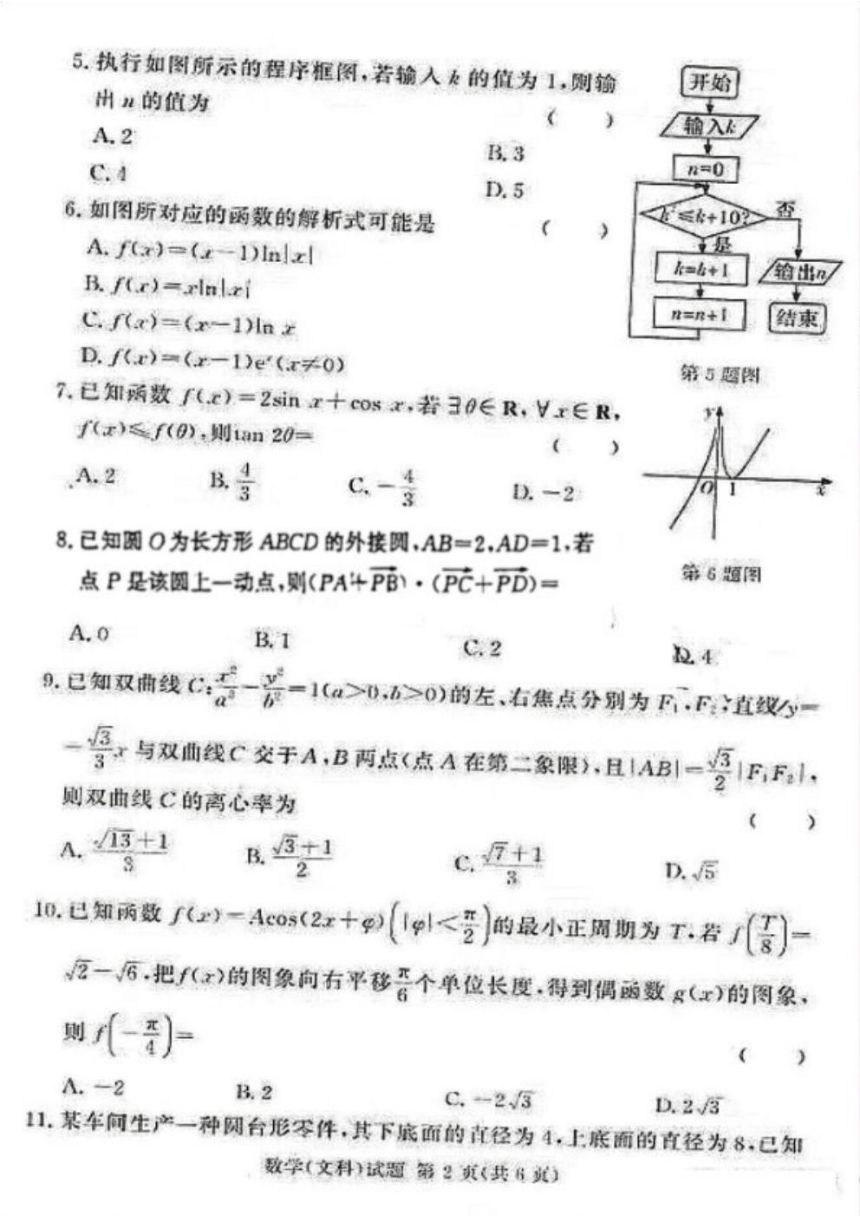 5.执行如图所示的程序框图,若输入k的值为1,则输
出n的值为 ( )
A.2 B.3
C.4 D.5
开始
输入k
n=0
k²≤k+10? 否
是
k=k+1 输出n
n=n+1 结束
第5题图
6.如图所对应的函数的解析式可能是 ( )
A.f(x)=(x-1)ln|x|
B.f(x)=xln|x|
C.f(x)=(x-1)ln x
D.f(x)=(x-1)eˣ(x≠0)
y
O 1 x
第6题图
7.已知函数f(x)=2sin x+cos x,若∃θ∈R,∀x∈R,
f(x)≤f(θ),则tan 2θ= ( )
A.2 B.4/3 C.-4/3 D.-2
8.已知圆O为长方形ABCD的外接圆,AB=2,AD=1,若
点P是该圆上一动点,则(PA+PB)·(PC+PD)=
A.0 B.1 C.2 D.4
9.已知双曲线C:x²/a²-y²/b²=1(a>0,b>0)的左、右焦点分别为F₁,F₂,直线y=
-√3/3x与双曲线C交于A,B两点(点A在第二象限),且|AB|=√3/2|F₁F₂|,
则双曲线C的离心率为 ( )
A.(√13+1)/3 B.(√3+1)/2 C.(√7+1)/3 D.√5
10.已知函数f(x)=Acos(2x+φ)(|φ|<π/2)的最小正周期为T,若f(T/8)=
√2-√6,把f(x)的图象向右平移π/6个单位长度,得到偶函数g(x)的图象,
则f(-π/4)= ( )
A.-2 B.2 C.-2√3 D.2√3
11.某车间生产一种圆台形零件,其下底面的直径为4,上底面的直径为8,已知
数学(文科)试题 第2页(共6页)